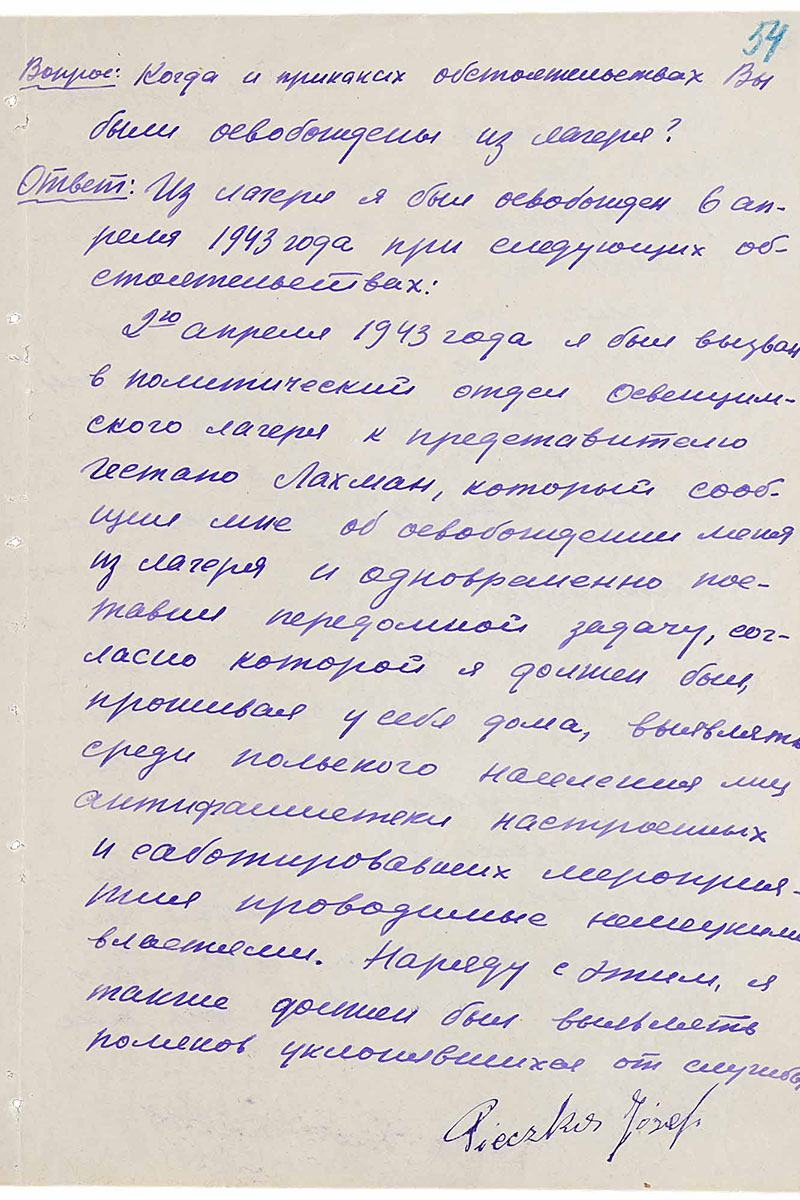 54
Вопрос: Когда и приканих обстоятельствах Вы
были освобождены из лагеря?
Ответ: Из лагеря я был освобожден 6 ап-
реля 1943 года при следующих об-
стоятельствах:
2го апреля 1943 года я был вызван
в политический отдел Освенцим-
ского лагеря к представителю
гестапо Лахман, который сооб-
щил мне об освобождении меня
из лагеря и одновременно пос-
тавил передомной задачу, сог-
ласно которой я должен был,
проживая у себя дома, выявлять
среди польского населения лиц
антифашистски настроенных
и саботировавших мероприя-
тия проводимые немецкими
властями. Наряду с этим, я
также должен был выявлять
поляков уклонявшихся от службы
Pieczka Józef